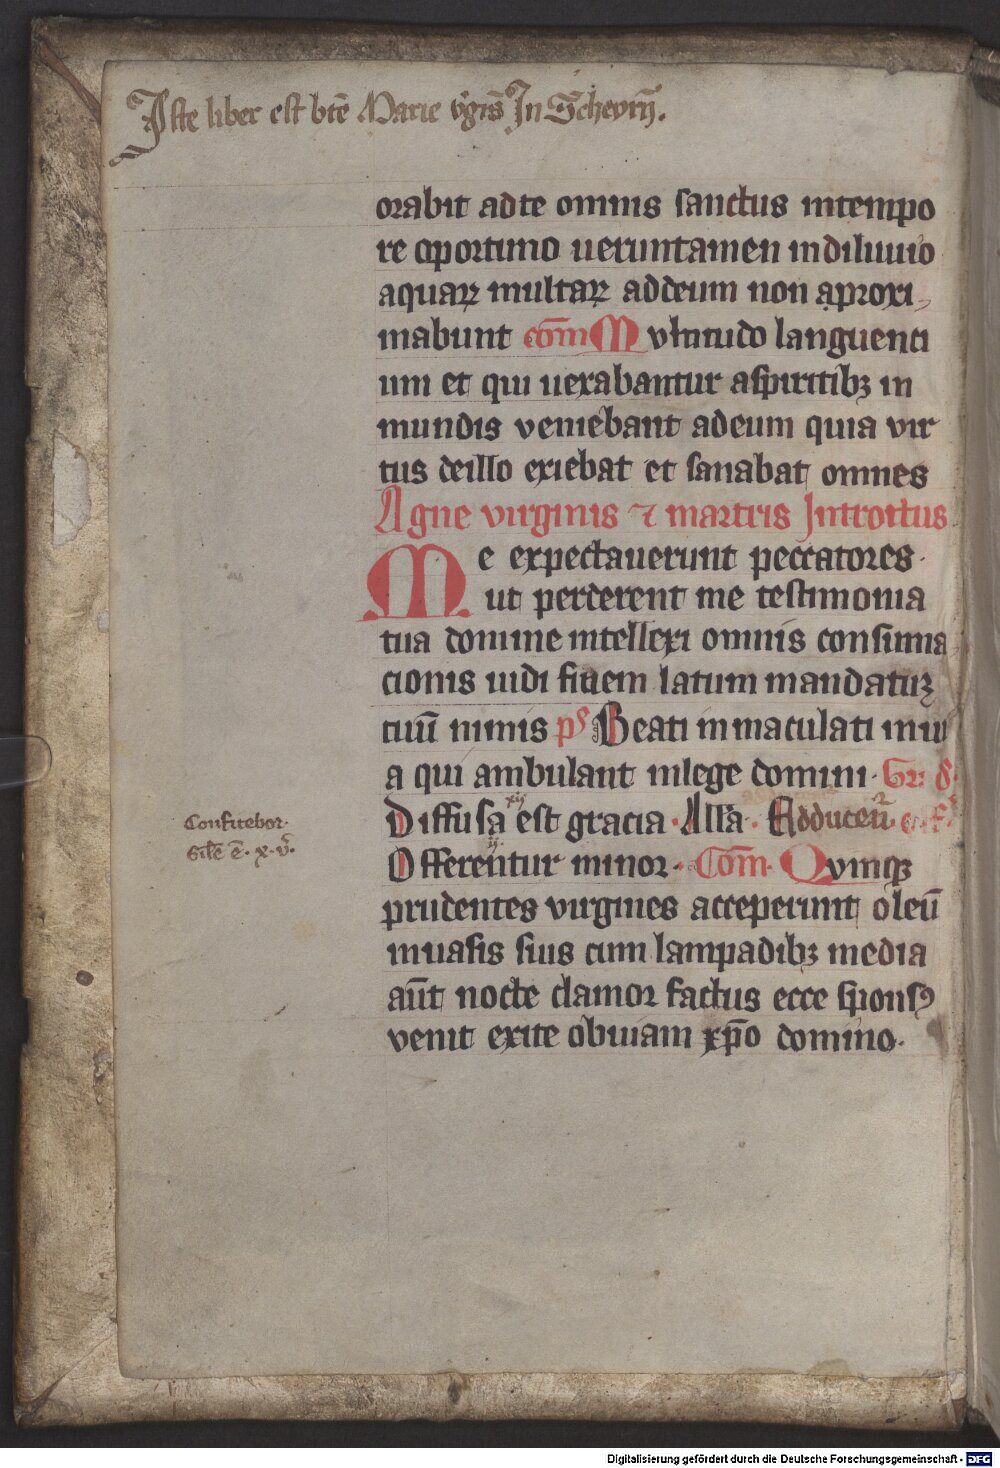 Iste liber est bte̅ Marie v̾gis̅ In Scheyrn̅.
orabit adte omnis sanctus intempo
re oportuno ueruntamen indiluuio
aquaꝝ multaꝝ addeum non aproxi
mabunt com̅ Mvltitudo languenci
um et qui uexabantur aspiritibꝫ in
mundis veniebant adeum quia vir
tus deillo exiebat et sanabat omnes
Agne virginis ⁊ martiris Introitus
Me expectauerunt peccatores·
ut perderent me testimonia
tua domine intellexi omnis consuma
cionis uidi finem latum mandatuꝫ
tuu̅ nimis ps Beati inmaculati inui
a qui ambulant inlege domini· Gr:
xij
Diffusa est gracia· All'a·
Adducent᷑
Confitebor·
ij
Offerentur minor· Com̅· Qvinqꝫ
Sile̅ e̅· x·
prudentes virgines acceperunt oleu̅
inuasis suis cum lampadibꝫ media
au̅t nocte clamor factus ecce sponsꝰ
venit exite obuiam xp̅o domino·
Digitalisierung gefördert durch die Deutsche Forschungsgemeinschaft - DFG